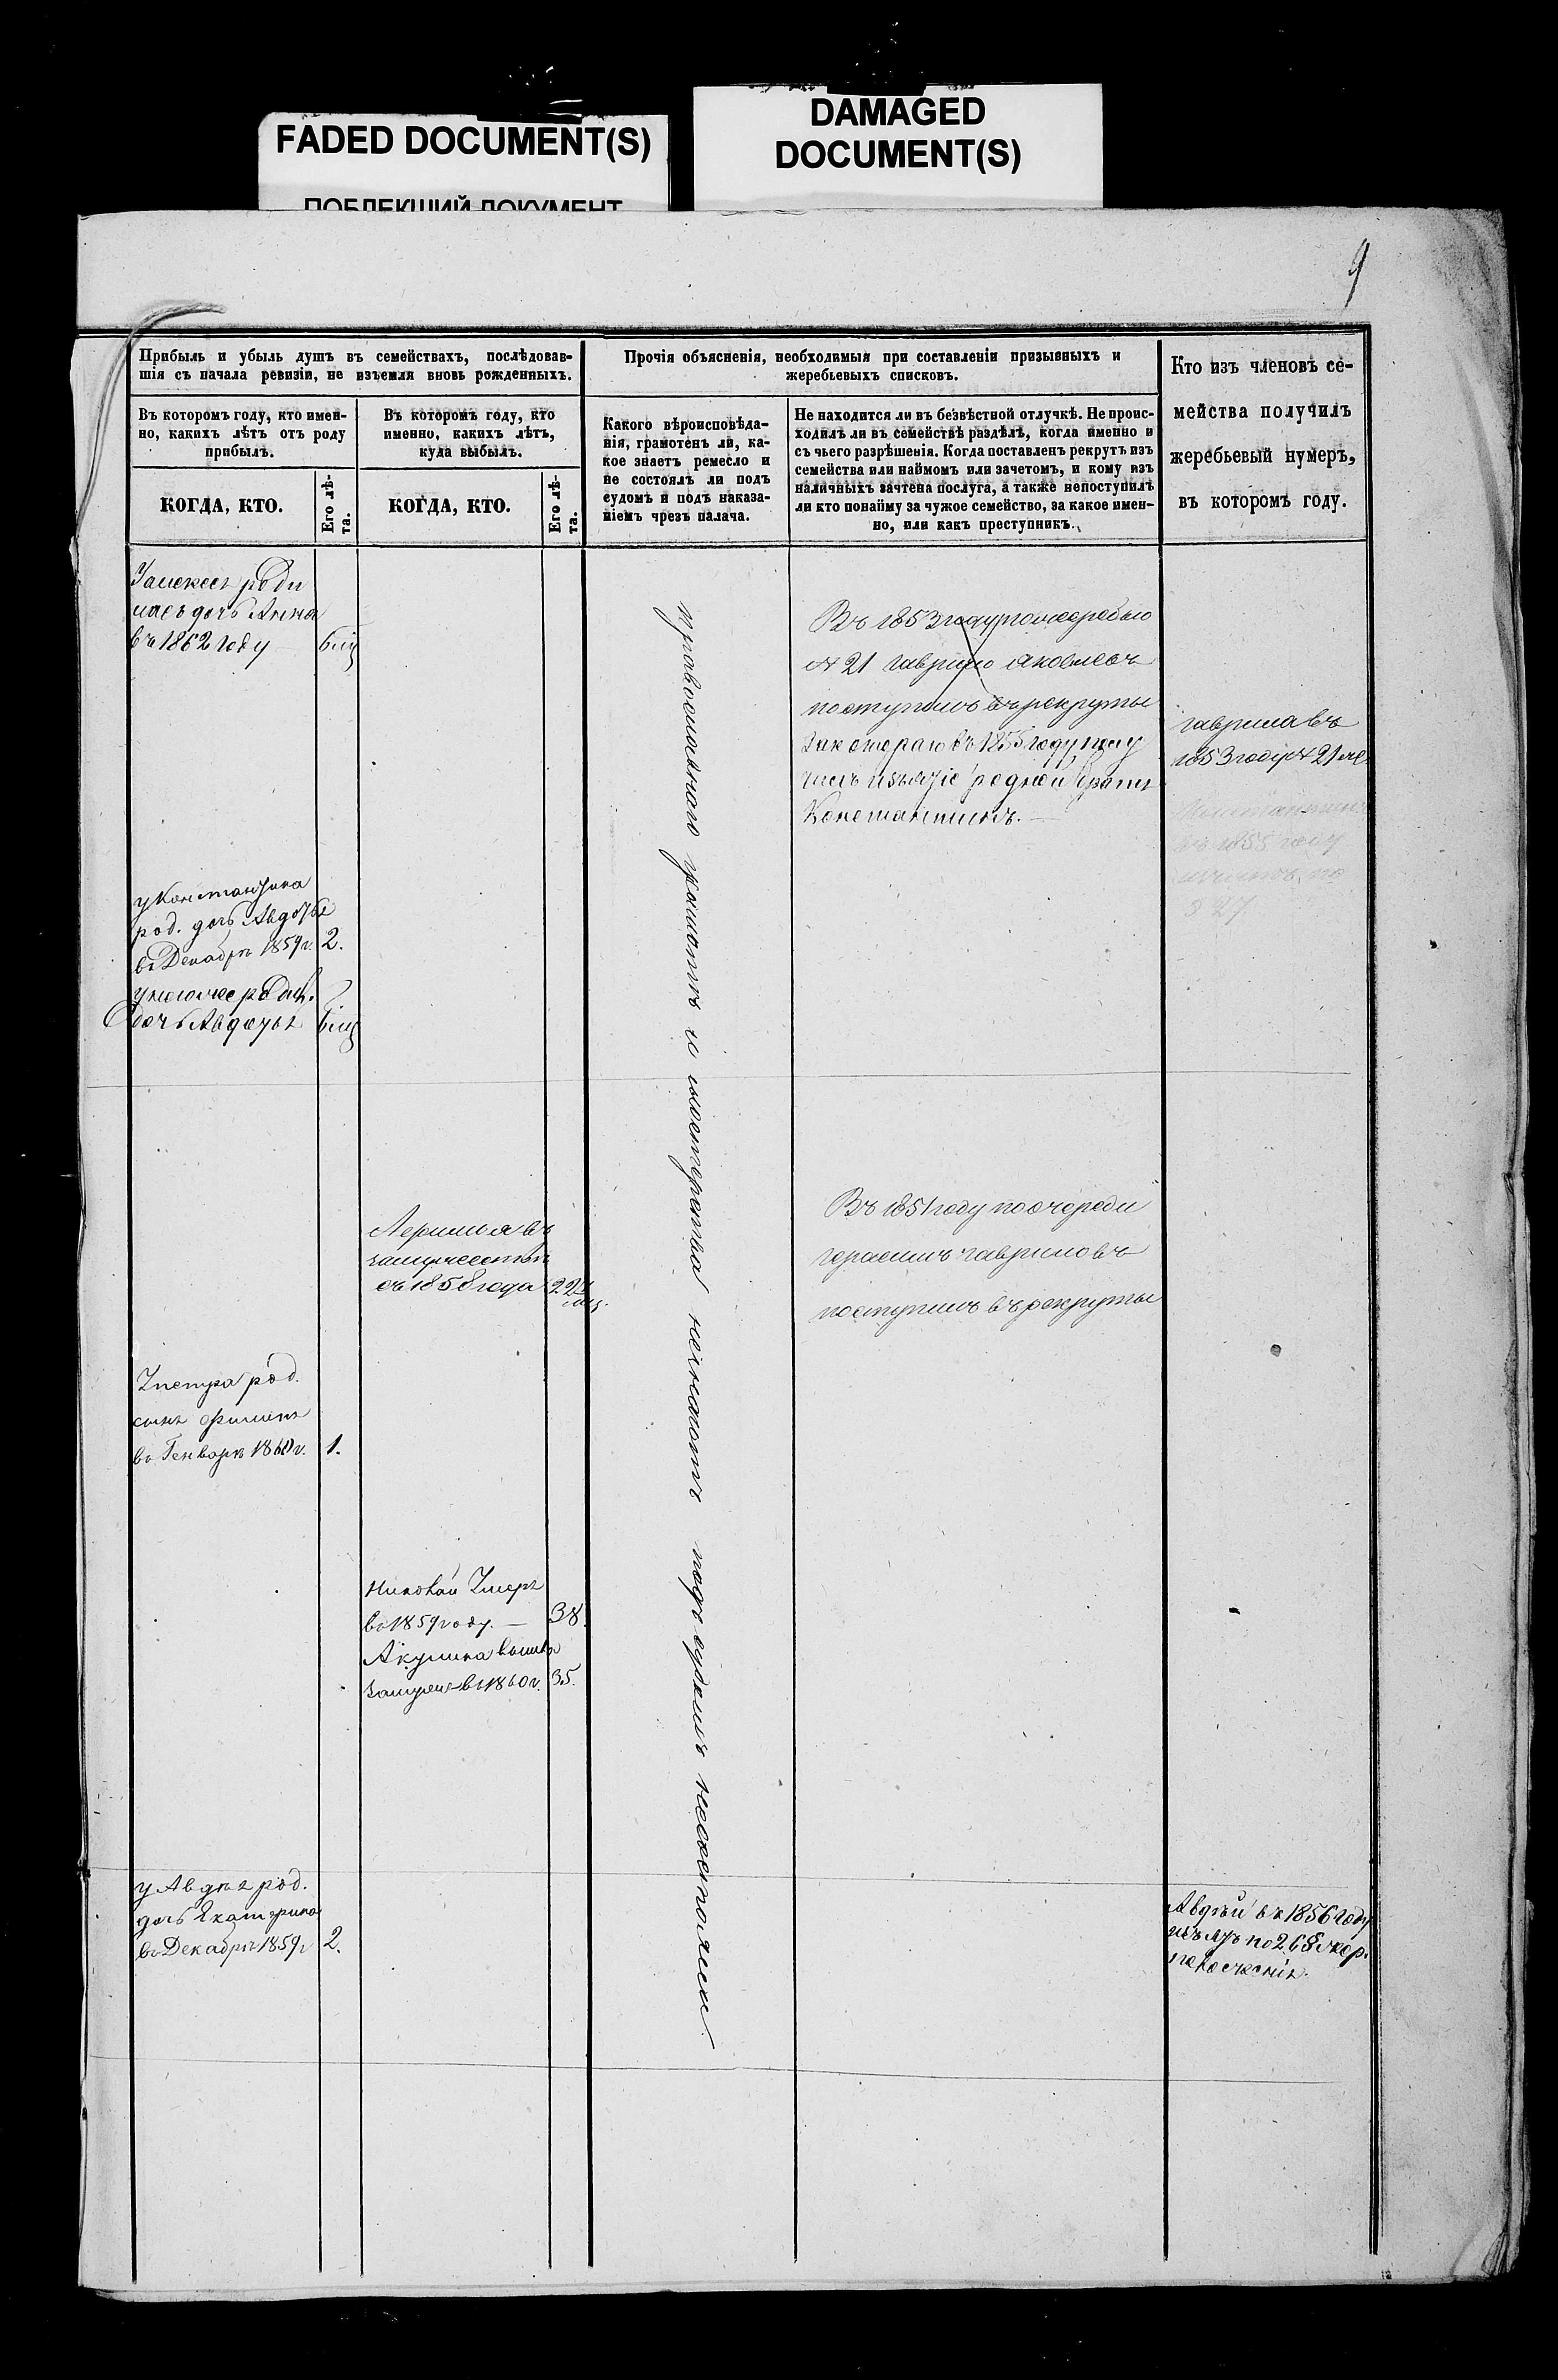 FADED DOCUMENT(S)
ПОБЛЕКШИЙ ДОКУМЕНТ
DAMAGED
DOCUMENT(S)
9
Прибыль и убыль душъ въ семействахъ, послѣдовав-
шія съ начала ревизіи, не изъемля вновь рожденныхъ.
Въ которомъ году, кто имен-
но, какихъ лѣтъ отъ роду
прибылъ.
КОГДА, КТО.
Его лѣ-
та.
Въ которомъ году, кто
именно, какихъ лѣтъ,
куда выбылъ.
КОГДА, КТО.
Его лѣ-
та.
Прочія объясненія, необходимыя при составленіи призывныхъ и
жеребьевыхъ списковъ.
Какого вѣроисповѣда-
нія, грамотенъ ли, ка-
кое знаетъ ремесло и
не состоялъ ли подъ
судомъ и подъ наказа-
ніемъ чрезъ палача.
Не находится ли въ безвѣстной отлучкѣ. Не проис-
ходилъ ли въ семействѣ раздѣлъ, когда именно и
съ чьего разрѣшенія. Когда поставленъ рекрутъ изъ
семейства или наймомъ или зачетомъ, и кому изъ
наличныхъ зачтена послуга, а также непоступилъ
ли кто понайму за чужое семейство, за какое имен-
но, или какъ преступникъ.
Кто изъ членовъ се-
мейства получилъ
жеребьевый нумеръ,
въ которомъ году.
роди
лась дочь Анна
въ 1862 году
Въ 1853 году по жеребью
№ 21 гаврило яковлевъ
поступилъ въ рекруты
за котораго въ 1855 году полу
чилъ изъятіе родной братъ
Константинъ.
гаврила въ
1853 году № 21
въ 1855 году
у Константина
род. дочь Авдотья
въ Декабрѣ 1859 г. 2.
дочь Авдотья
православнаго грамотѣ и мастерства незнаютъ подъ судомъ несостояли
замужествѣ
съ 1858 года 22
Въ 1851 году по очереди
герасимъ гавриловъ
поступилъ въ рекруты
У петра род.
сынъ филипъ
въ Генваре 1860 г. 1.
Николай Умеръ
въ 1859 году. — 38.
Акулина вышла
замужъ въ 1860 г. 35.
у Авдѣя род.
дочь Екатерина
въ Декабрѣ 1859 г 2.
Авдѣй въ 1856 году
по 268 жер.